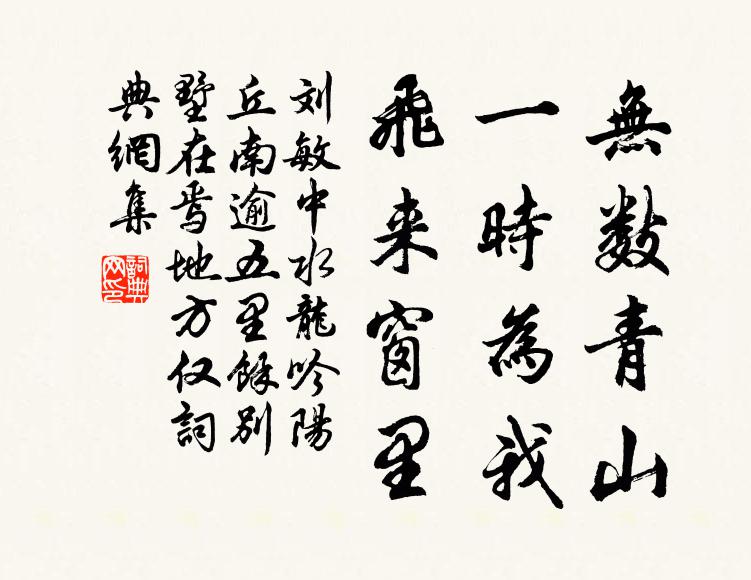 無數青山
一時為我
飛来窗里
刘敏中水龍吟陽
丘南逾五里餘別
墅在焉地方仅詞
典網集
詞典網印